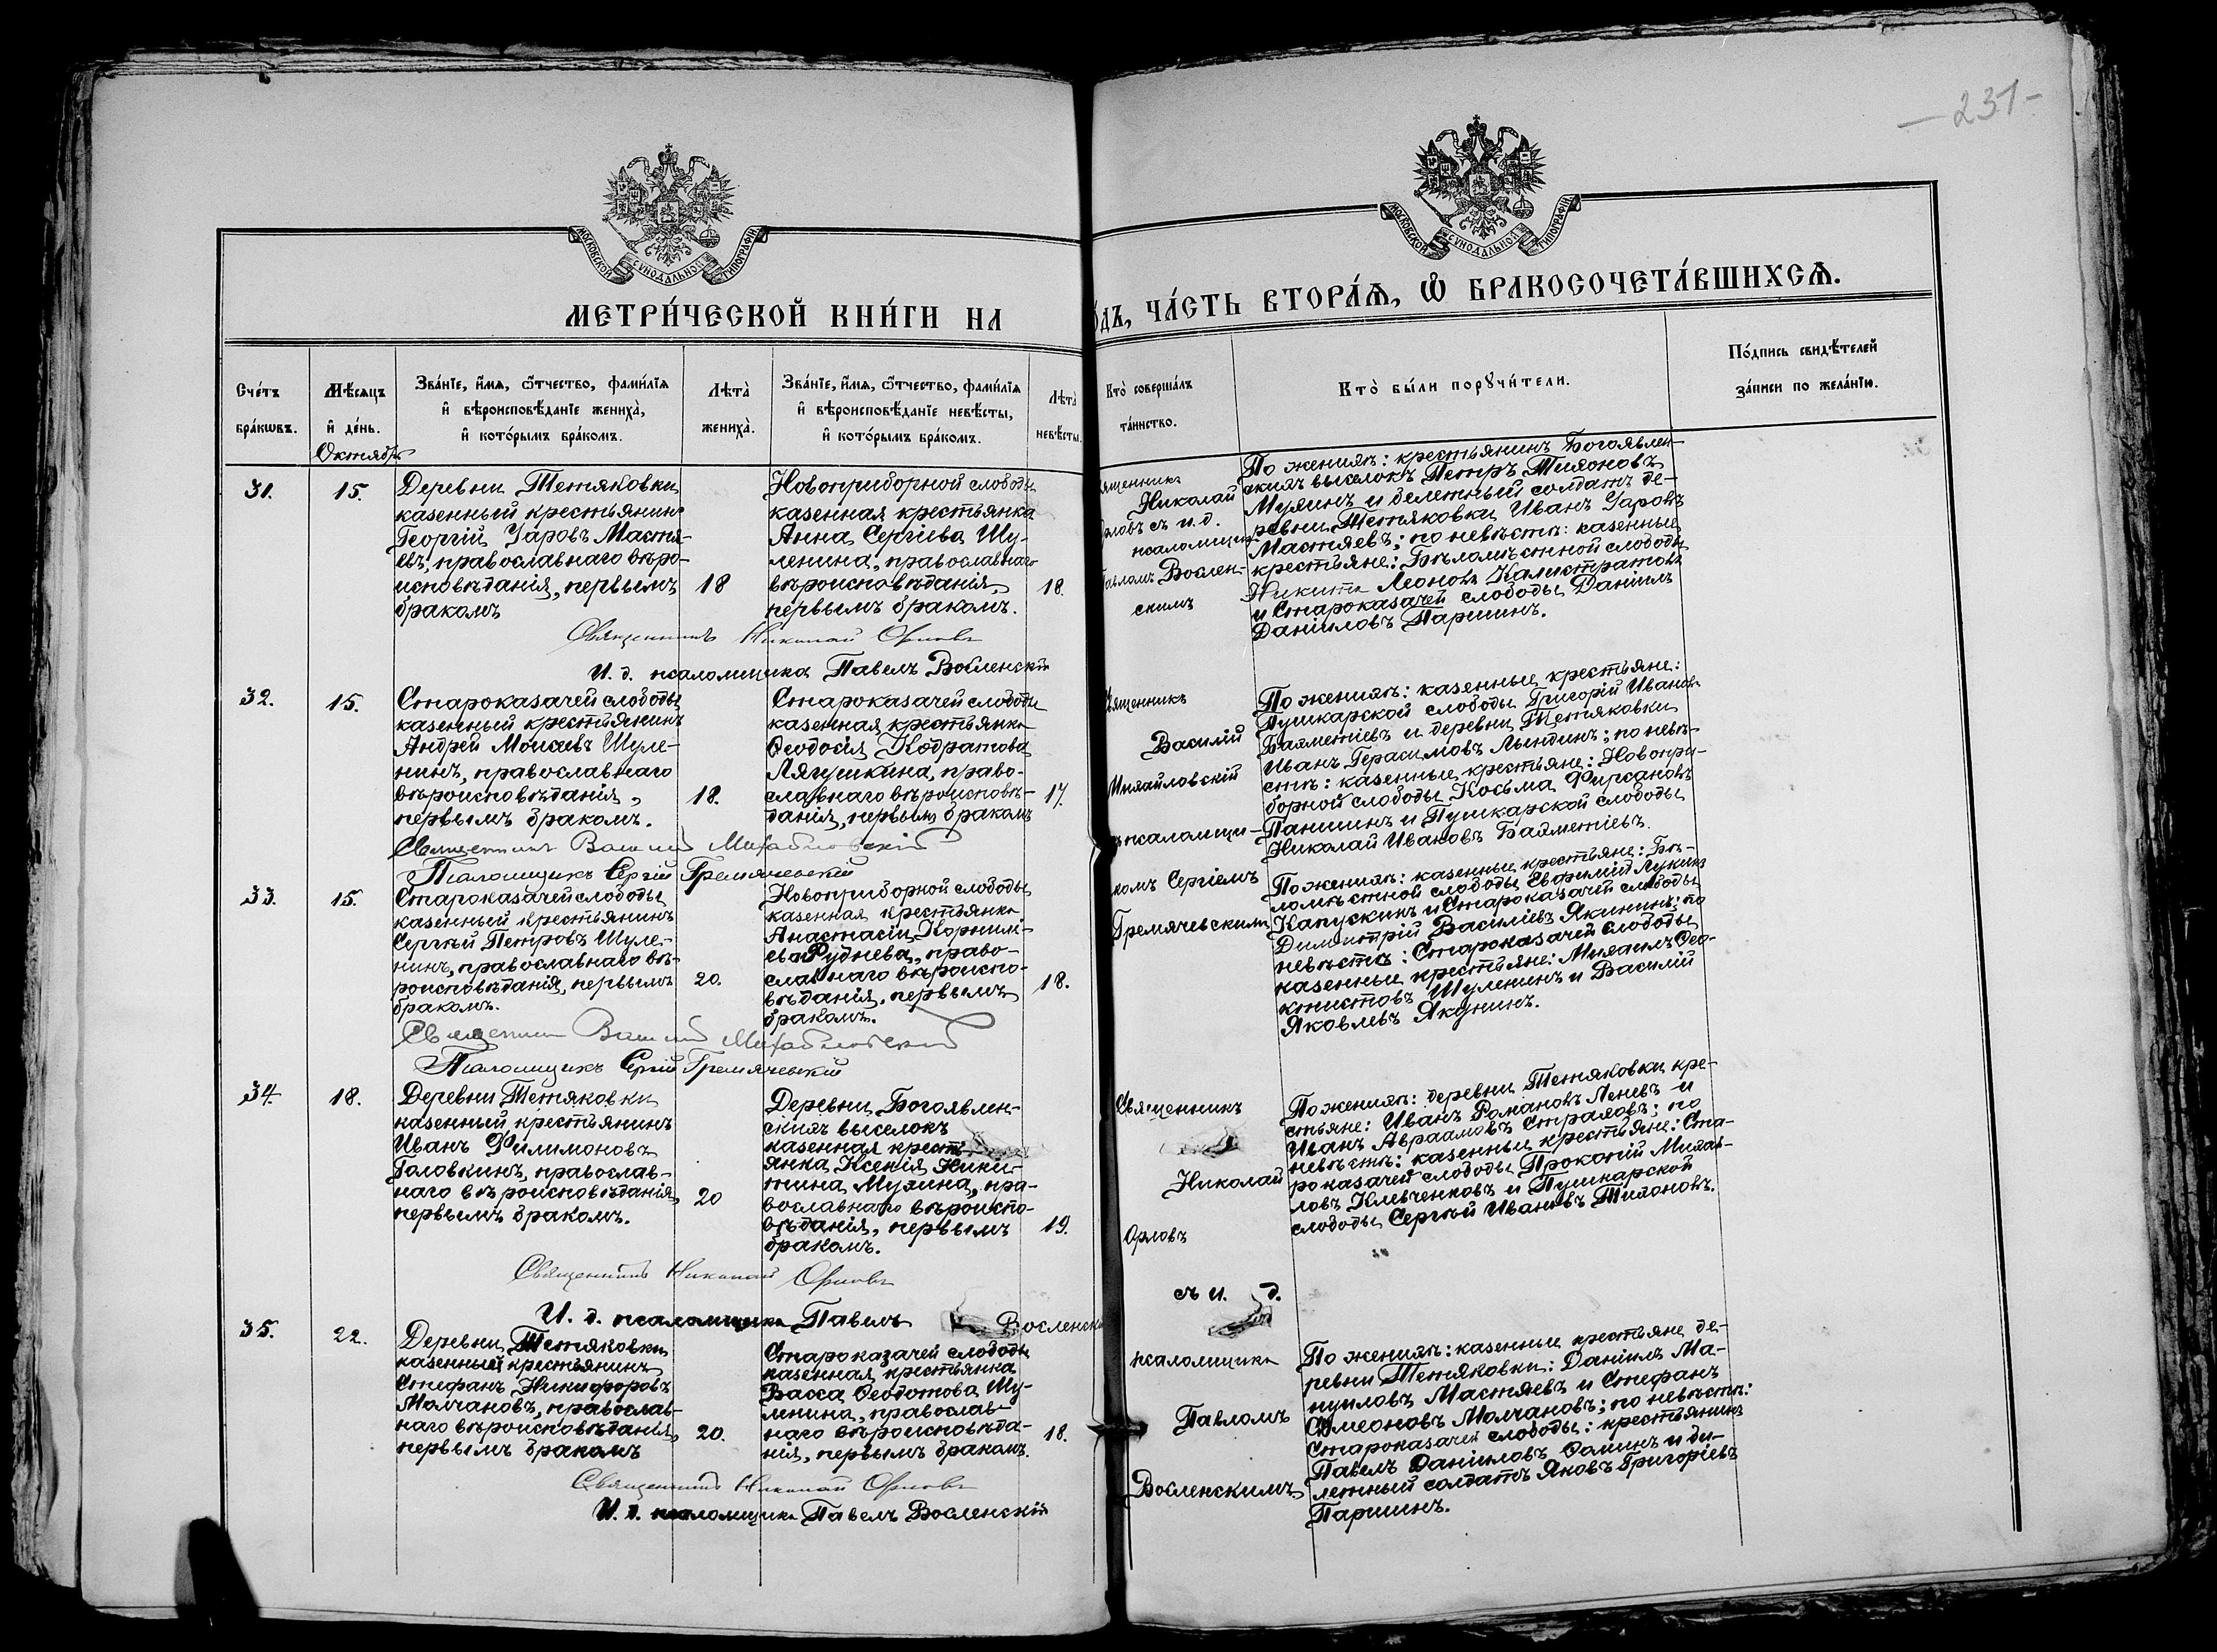 — 231 —
МОСКОВСКОЙ СѴНОДАЛЬНОЙ ТИПОГРАФІИ
МОСКОВСКОЙ СѴНОДАЛЬНОЙ ТИПОГРАФІИ
МЕТРИ́ЧЕСКОЙ КНИ́ГИ НА
ОДЪ, ЧА́СТЬ ВТОРА́Ѧ, Ѽ БРАКОСОЧЕТА́ВШИХСѦ.
Сче́тъ
бра́кѡвъ.
Мѣ́сяцъ
и҆ де́нь.
Октябрь
Зва́нїе, и҆́мѧ, ѻ҆́тчество, фами́лїѧ
и҆ вѣроисповѣ́данїе жениха̀,
и҆ кото́рымъ бра́комъ.
Лѣта̀
жениха̀.
Зва́нїе, и҆́мѧ, ѻ҆́тчество, фами́лїѧ
и҆ вѣроисповѣ́данїе невѣ́сты,
и҆ кото́рымъ бра́комъ.
Лѣта̀
невѣ́сты.
Кто̀ соверша́лъ
та́инство.
Кто̀ бы́ли порꙋчи́тели.
По́дпись свидѣ́телей
за́писи по жела́нїю.
31.
15.
Деревни Тетяковки
казенный крестьянинъ
Георгій Уаровъ Мастя-
евъ, православнаго вѣро-
исповѣданія, первымъ
бракомъ
18
Новоприборной слободы
казенная крестьянка
Анна Сергіева Шу-
ленина, православнаго
вѣроисповѣданія,
первымъ бракомъ.
18.
ященникъ
Николай
рловъ съ и. д.
псаломщика
Павломъ Вослен-
скимъ
По женихѣ: крестьянинъ Богоявлен-
скихъ выселокъ Петръ Тихоновъ
Мухинъ и билетный солдатъ де-
ревни Тетяковки Иванъ Уаровъ
Мастяевъ; по невѣстѣ: казенные
крестьяне: Бѣломѣстной слободы
Никита Леоновъ Калистратовъ
и Староказачей слободы Даніилъ
Даніиловъ Паршинъ.
Священникъ Николай Орловъ
И. д. псаломщика Павелъ Восленскій
32.
15.
Староказачей слободы
казенный крестьянинъ
Андрей Моисеевъ Шуле-
нинъ, православнаго
вѣроисповѣданія,
первымъ бракомъ.
18.
Староказачей слободы
казенная крестьянка
Ѳеодосія Кодратова
Лягушкина, право-
славнаго вѣроисповѣ-
данія, первымъ бракомъ
17.
вященникъ
Василій
Михайловскій
ъ псаломщи-
комъ Сергіемъ
Гремячевскимъ
По женихѣ: казенные крестьяне:
Пушкарской слободы Григорій Ивановъ
Бахметіевъ и деревни Тетяковки
Иванъ Герасимовъ Лындинъ; по невѣ-
стѣ: казенные крестьяне: Новопри-
борной слободы Косьма Фирсановъ
Панинъ и Пушкарской слободы
Николай Ивановъ Бахметіевъ.
Священникъ Василій Михайловскій
Псаломщикъ Сергій Гремячевскій
33.
15.
Староказачей слободы
казенный крестьянинъ
Сергѣй Петровъ Шуле-
нинъ, православнаго вѣ-
роисповѣданія, первымъ
бракомъ.
20.
Новоприборной слободы
казенная крестьянка
Анастасія Корнилі-
ева Руднева, право-
славнаго вѣроиспо-
вѣданія, первымъ
бракомъ.
18.
По женихѣ: казенные крестьяне: Бѣ-
ломѣстной слободы Евфимій Лукинъ
Капускинъ и Староказачей слободы
Димитрій Василіевъ Якининъ; по
невѣстѣ: Староказачей слободы
казенные крестьяне: Михаилъ Ѳео-
ктистовъ Шуленинъ и Василій
Яковлевъ Якунинъ.
Священникъ Василій Михайловскій
Псаломщикъ Сергій Гремячевскій
34.
18.
Деревни Тетяковки
казенный крестьянинъ
Иванъ Филимоновъ
Головкинъ, православ-
наго вѣроисповѣданія,
первымъ бракомъ.
20
Деревни Богоявлен-
скихъ выселокъ
казенная кресть-
янка Ксенія Ники-
тина Мухина, пра-
вославнаго вѣроиспо-
вѣданія, первымъ
бракомъ.
19.
Священникъ
Николай
Орловъ
съ и. д.
псаломщика
Павломъ
Восленскимъ
По женихѣ: деревни Тетяковки кре-
стьяне: Иванъ Романовъ Леневъ и
Иванъ Авраамовъ Страховъ; по
невѣстѣ: казенные крестьяне: Ста-
роказачей слободы Прокопій Михай-
ловъ Клевченковъ и Пушкарской
слободы Сергѣй Ивановъ Тихоновъ.
Священникъ Николай Орловъ
И. д. псаломщика Павелъ Восленскій
35.
22.
Деревни Тетяковки
казенный крестьянинъ
Стефанъ Никифоровъ
Молчановъ, православ-
наго вѣроисповѣданія,
первымъ бракомъ
20.
Староказачей слободы
казенная крестьянка
Васса Ѳеодотова Шу-
ленина, православ-
наго вѣроисповѣда-
нія, первымъ бракомъ.
18.
По женихѣ: казенные крестьяне де-
ревни Тетяковки: Даніилъ Ма-
нуиловъ Мастяевъ и Стефанъ
Сѵмеоновъ Молчановъ; по невѣстѣ:
Староказачей слободы: крестьянинъ
Павелъ Даніиловъ Ѳоминъ и би-
летный солдатъ Яковъ Григоріевъ
Паршинъ.
Священникъ Николай Орловъ
И. д. псаломщика Павелъ Восленскій